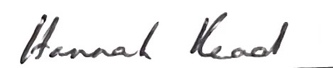 Hannah Kead